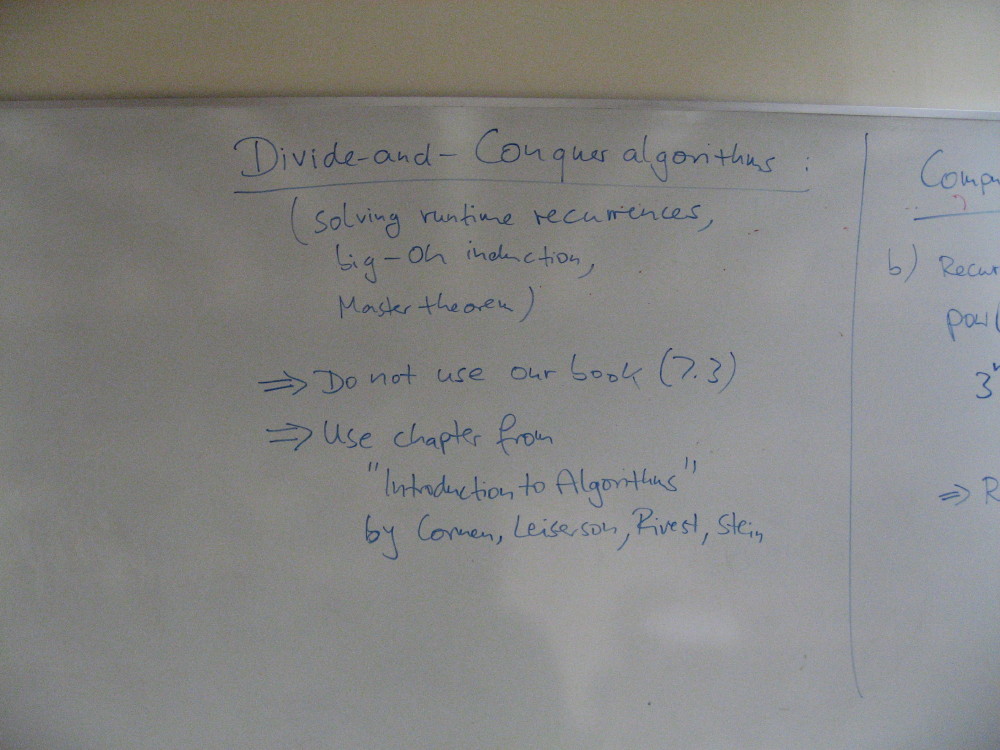 Divide-and-Conquer algorithms :
(solving runtime recurrences,
big-Oh induction,
Master theorem)
⇒ Do not use our book (7.3)
⇒ Use chapter from
"Introduction to Algorithms"
by Cormen, Leiserson, Rivest, Stein
b)
pow(
3ⁿ
⇒ R